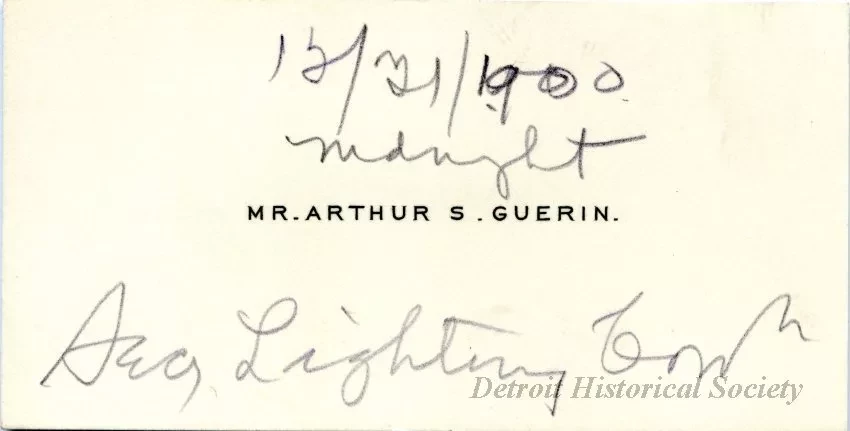 12/31/1900
midnight
MR. ARTHUR S. GUERIN.
Secy Lighting Com
Detroit Historical Society